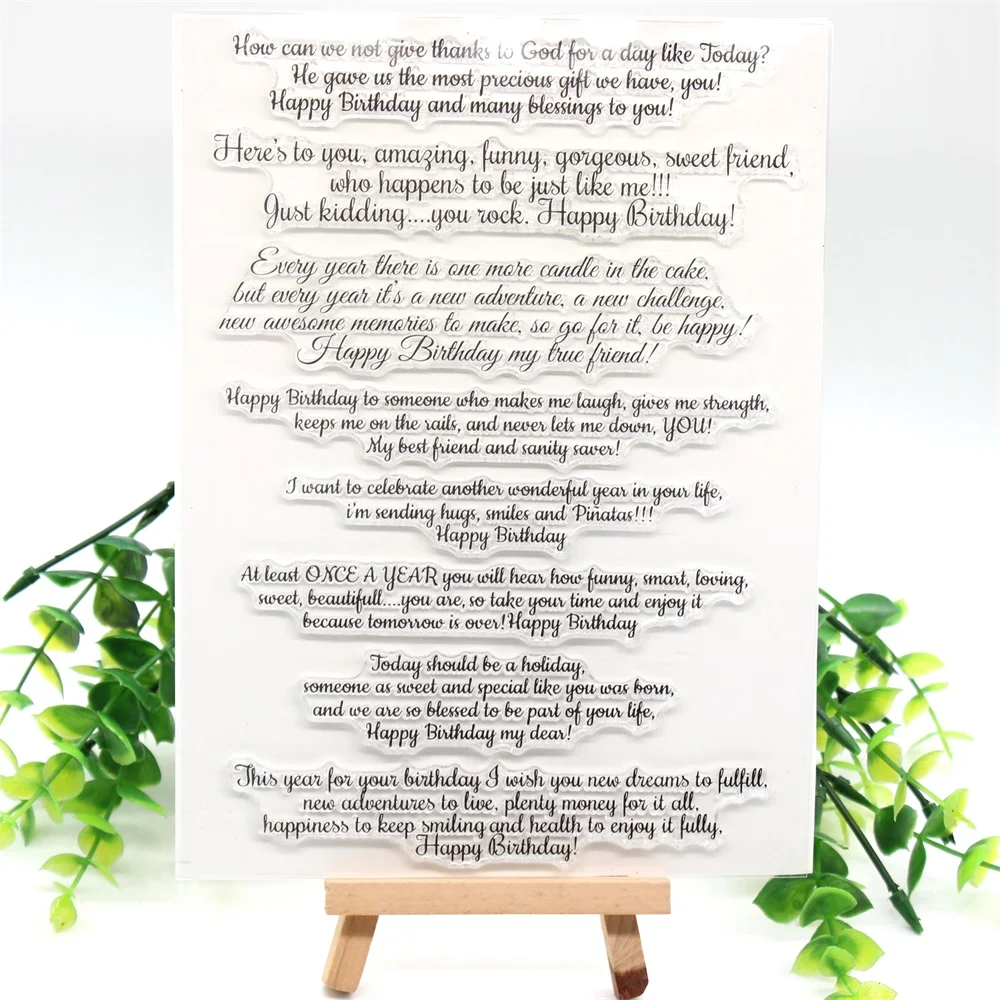 How can we not give thanks to God for a day like Today?
He gave us the most precious gift we have, you!
Happy Birthday and many blessings to you!
Here's to you, amazing, funny, gorgeous, sweet friend,
who happens to be just like me!!!
Just kidding....you rock. Happy Birthday!
Every year there is one more candle in the cake,
but every year it's a new adventure, a new challenge,
new awesome memories to make, so go for it, be happy!
Happy Birthday my true friend!
Happy Birthday to someone who makes me laugh, gives me strength,
keeps me on the rails, and never lets me down, YOU!
My best friend and sanity saver!
I want to celebrate another wonderful year in your life,
i'm sending hugs, smiles and Piñatas!!!
Happy Birthday
At least ONCE A YEAR you will hear how funny, smart, loving,
sweet, beautifull....you are, so take your time and enjoy it
because tomorrow is over! Happy Birthday
Today should be a holiday,
someone as sweet and special like you was born,
and we are so blessed to be part of your life,
Happy Birthday my dear!
This year for your birthday I wish you new dreams to fulfill,
new adventures to live, plenty money for it all,
happiness to keep smiling and health to enjoy it fully,
Happy Birthday!